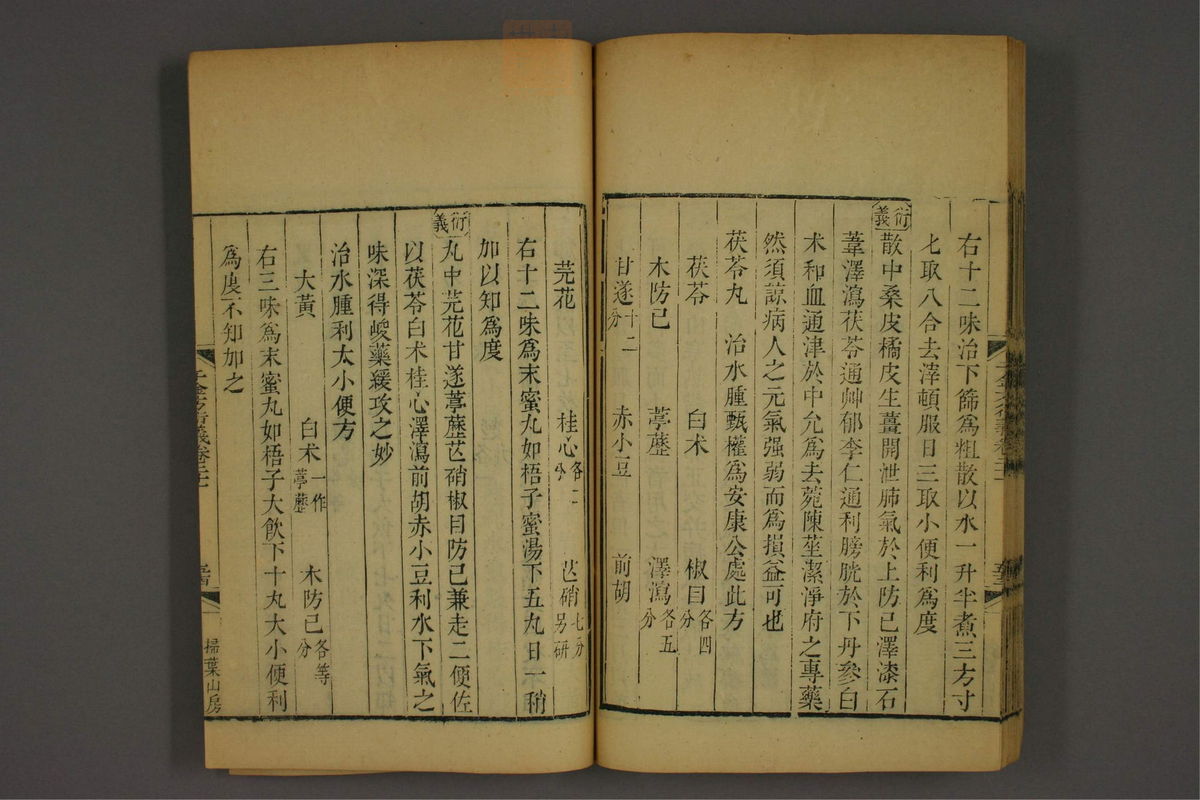 右十二味治下篩爲粗散以水一升半煮三方寸
匕取八合去滓頓服日三取小便利爲度
衍義
散中桑皮橘皮生薑開泄肺氣於上防己澤漆石
葦澤瀉茯苓通艸郁李仁通利膀胱於下丹參白
术和血通津於中允爲去菀陳莝潔淨府之專藥
然須諒病人之元氣强弱而爲損益可也
茯苓丸 治水腫甄權爲安康公處此方
茯苓 白术 椒目各四分
木防己 葶藶 澤瀉各五分
甘遂十二分 赤小豆 前胡
芫花 桂心各二分 芒硝七分另研
右十二味爲末蜜丸如梧子蜜湯下五丸日一稍
加以知爲度
衍義
丸中芫花甘遂葶藶芒硝椒目防己兼走二便佐
以茯苓白术桂心澤瀉前胡赤小豆利水下氣之
味深得峻藥緩攻之妙
治水腫利大小便方
大黃 白术一作葶藶 木防己各等分
右三味爲末蜜丸如梧子大飲下十丸大小便利
爲度不知加之
千金方衍義卷二十一
掃葉山房